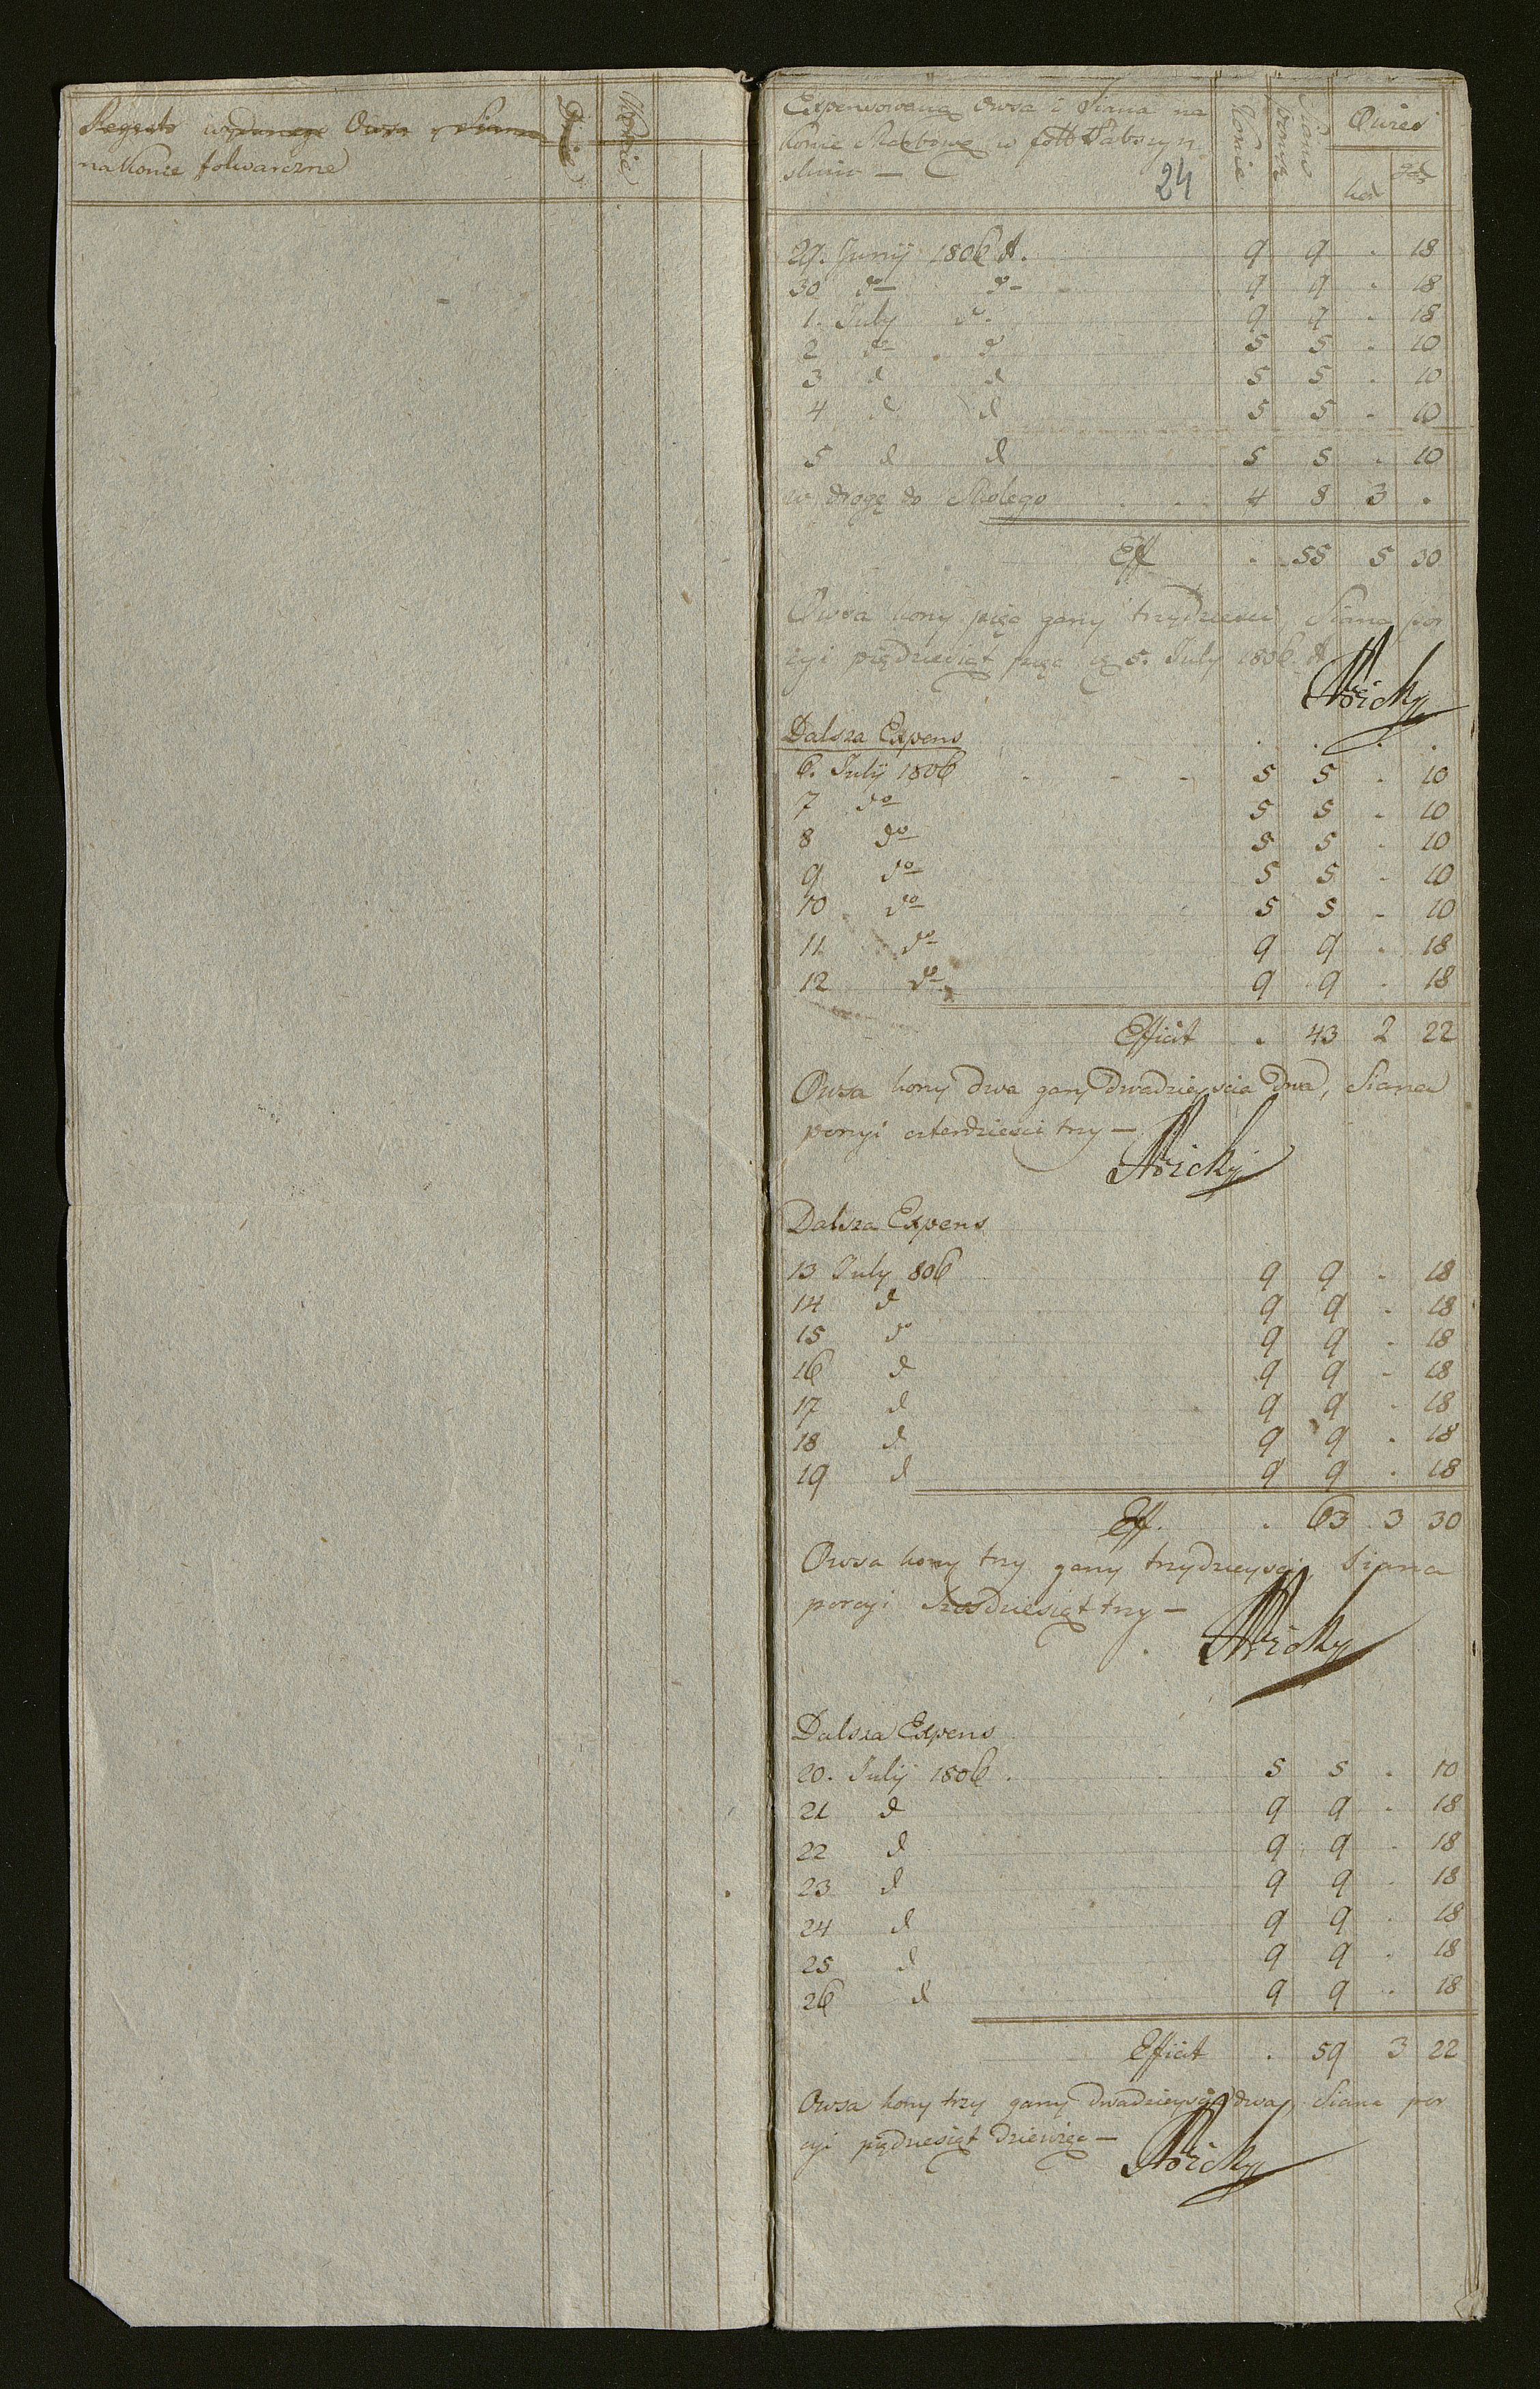 Regestr wydanego Owsa y Siana
na Konie folwarczne
Dnie
Konie
Expensowana Owsa i Siana na
Konie w foll
24
Konie
Siano porcyi
Owies
kor
gar
29. Junij 1806 A. 9 9 . 18
30 do do 9 9 . 18
1. July do. 9 9 . 18
2 do d 5 5 . 10
3 d d 5 5 . 10
4 d d 5 5 . 10
5 d d 5 5 . 10
w drogę do Skolego 4 8 3 .
Eff . 55 5 30
Owsa kory pięc garcy trzydziesci, Siana por
cyi piędziesiąt pięc d 5. July 1806. A
Dalsza Expens . . . .
6. Julij 1806 - - - 5 5 . 10
7 do 5 5 . 10
8 do 5 5 . 10
9 do 5 5 . 10
10 do 5 5 . 10
11 do 9 9 . 18
12 do 9 9 . 18
Efficit . 43 2 22
Owsa kory dwa gary Dwadzieyscia Dwa, Siana
porcyi czterdziesci trzy —
Dalsza Expens
13 July 806 9 9 . 18
14 d 9 9 . 18
15 do 9 9 . 18
16 d 9 9 . 18
17 d 9 9 . 18
18 d 9 9 . 18
19 d 9 9 . 18
Eff. . 63 3 30
Owsa kory trzy gary trzydzieysci, Siana
porcyi Szesdziesiąt trzy —
Dalsza Expens
20. Julij 1806 . 5 5 . 10
21 d 9 9 . 18
22 d 9 9 . 18
23 d 9 9 . 18
24 d 9 9 . 18
25 d 9 9 . 18
26 d 9 9 . 18
Efficit . 59 3 22
Owsa kory trzy gary Dwadzieyscia dwa, Siana por
cyi piędziesiąt Dziewięc —